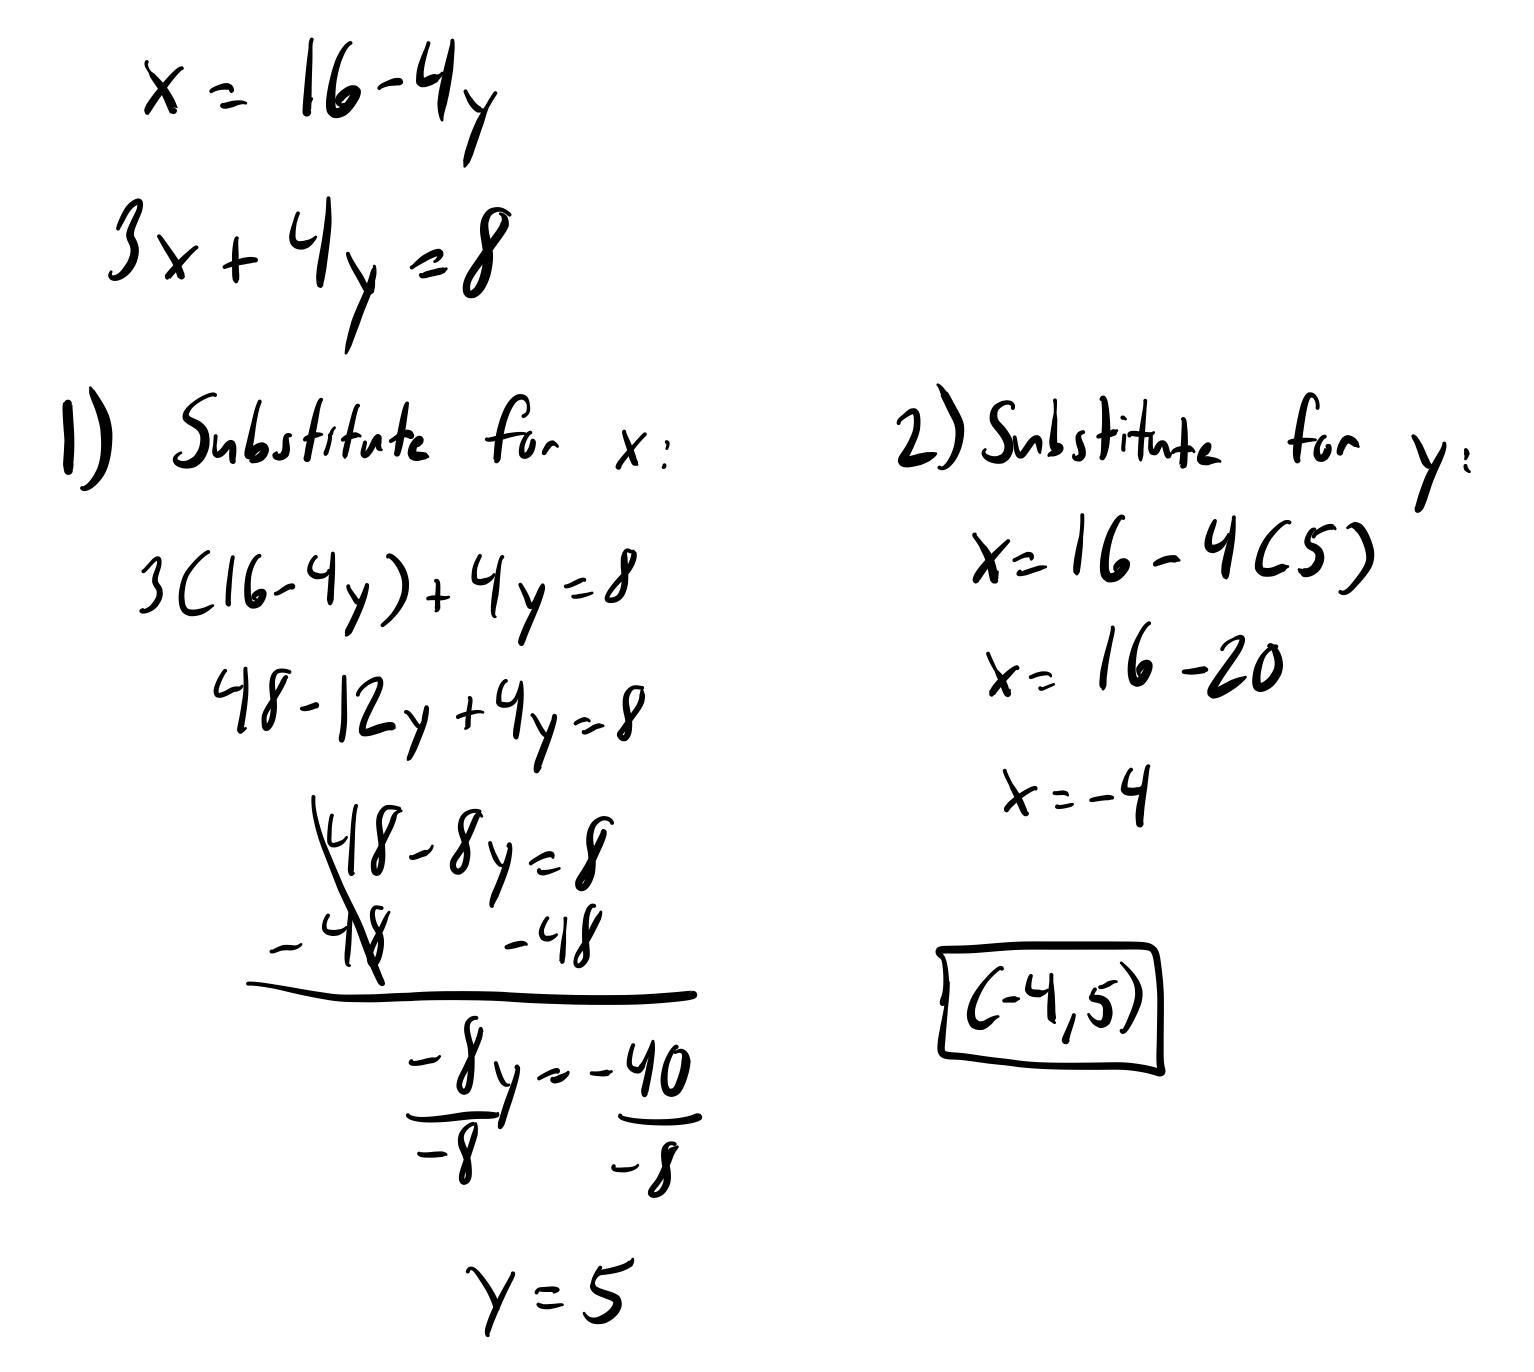 x = 16-4y
3x + 4y = 8
1) Substitute for x:
3(16-4y) + 4y = 8
48 - 12y + 4y = 8
48 - 8y = 8
- 48 - 48
-8y = -40
-8 -8
y = 5
2) Substitute for y:
x = 16 - 4(5)
x = 16 - 20
x = -4
(-4, 5)